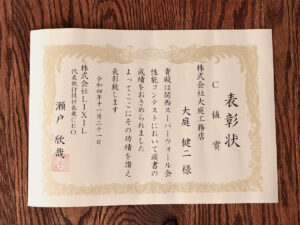 表彰状
C値賞
株式会社大庭工務店
大庭 健二 様
貴殿は関西スーパーウォール会
性能コンテストにおいて頭書の
成績をおさめられました
よってここにその功績を讃え
表彰致します
令和四年十一月二十一日
株式会社LIXIL
代表執行役社長兼CEO
瀬戸 欣哉